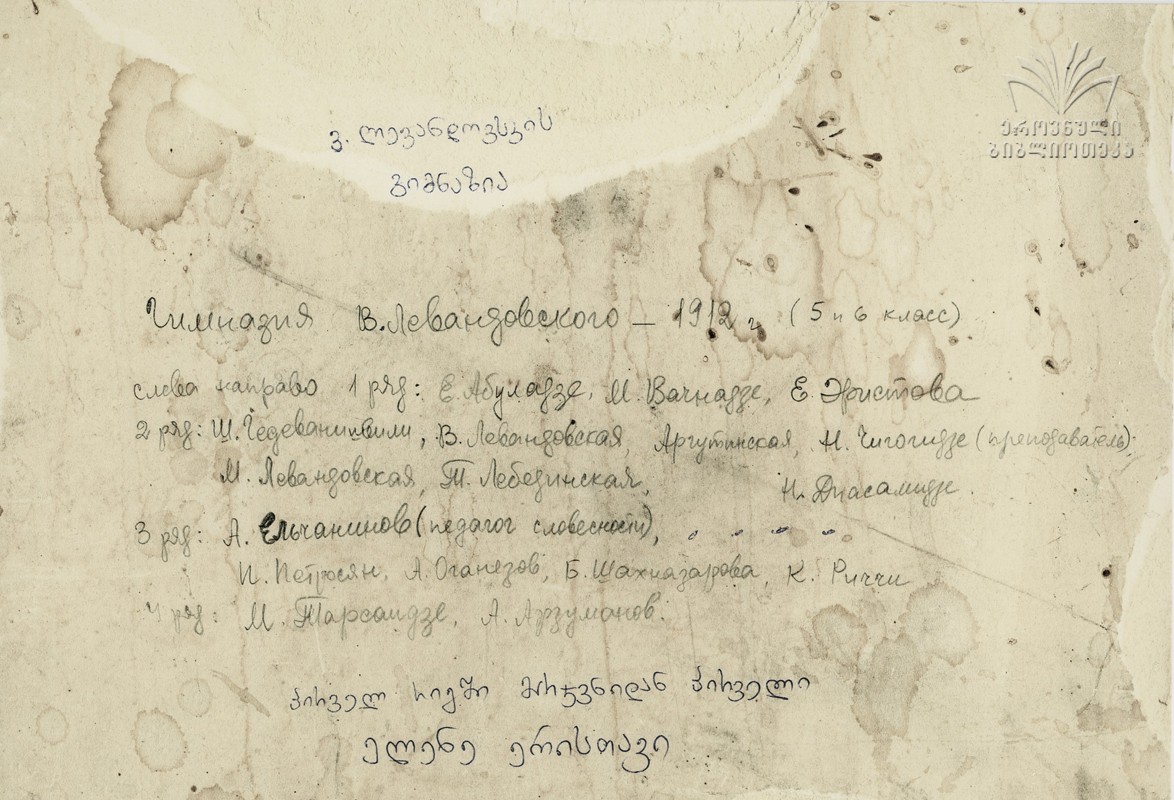 ვ. ლევანდოვსკის
გიმნაზია
ეროვნული
ბიბლიოთეკა
Гимназия В. Левандовского – 1912 г. (5 и 6 класс)
слева направо 1 ряд: Е. Абуладзе, М. Вачнадзе, Е. Эристова
2 ряд: Ш. Чедеванишвили, В. Левандовская, Аргутинская, Н. Чигогидзе (преподаватель),
М. Левандовская, Т. Лебединская, Н. Диасамидзе.
3 ряд: А. Ельчанинов (педагог словесности), " " " "
И. Петросян, А. Оганезов, Б. Шахназарова, К. Риччи
4 ряд: М. Тарсаидзе, А. Арзуманов.
პირველ რიგში მარჯვნიდან პირველი
ელენე ერისთავი